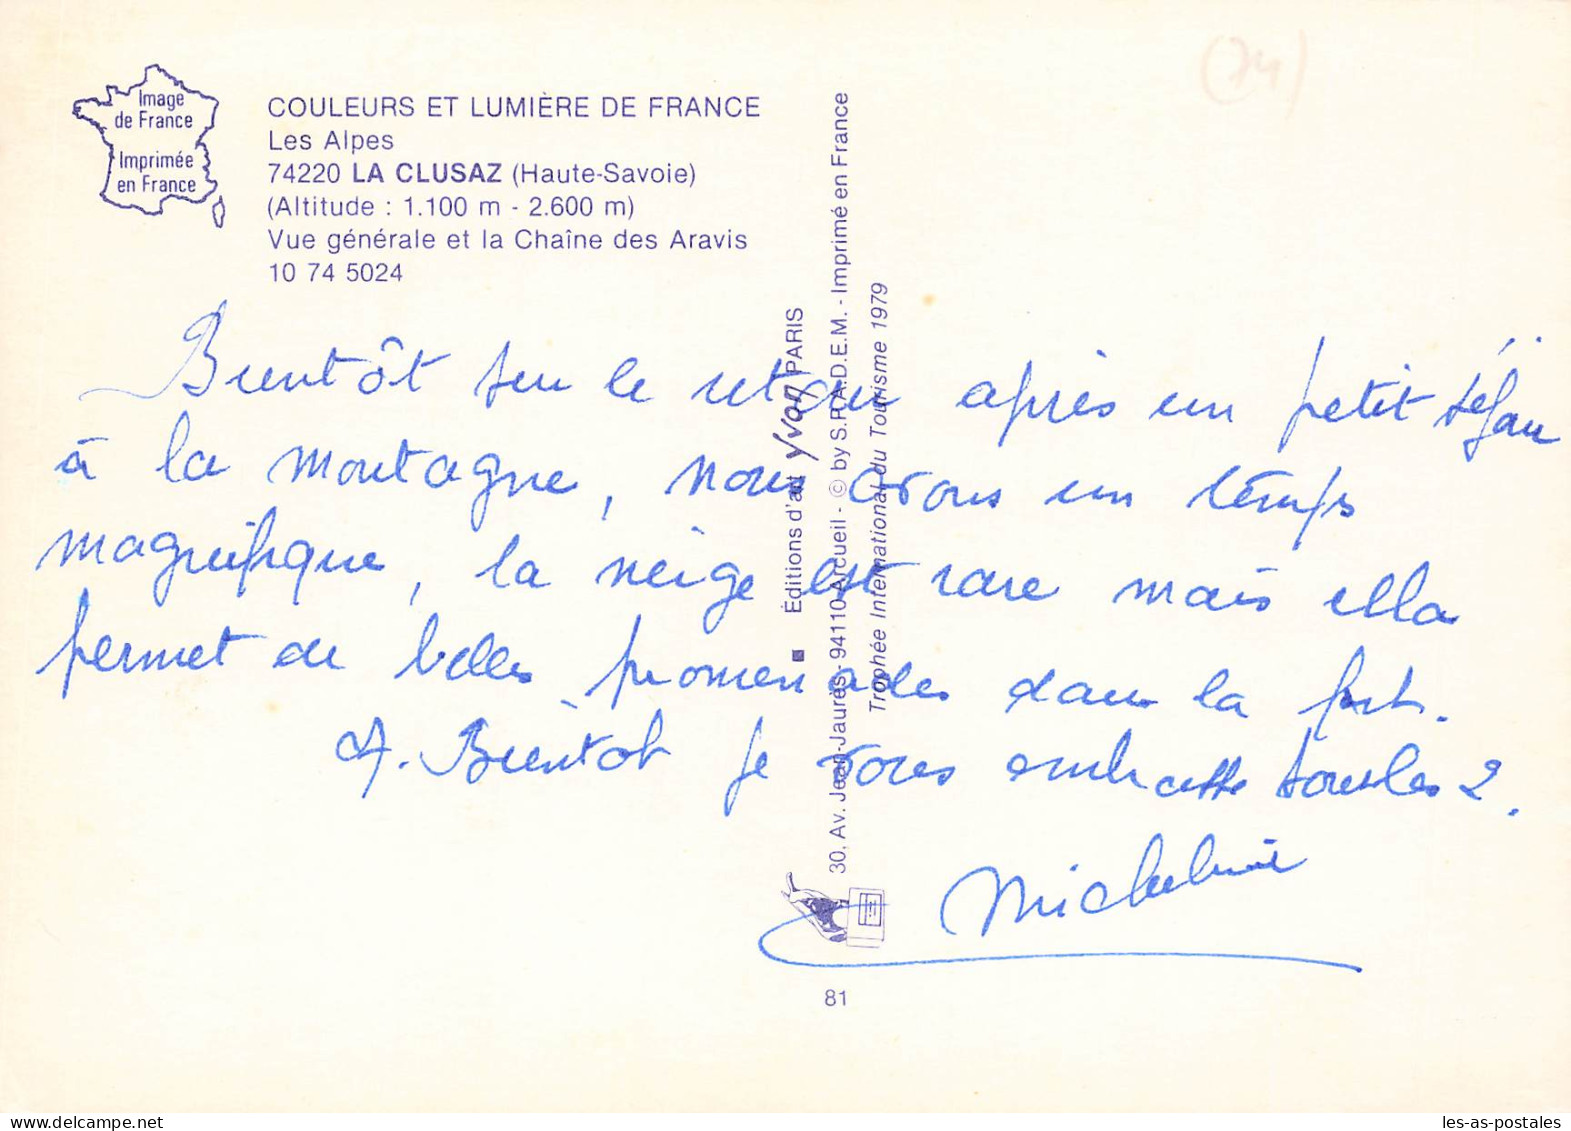 Image
de France
Imprimée
en France
COULEURS ET LUMIÈRE DE FRANCE
Les Alpes
74220 LA CLUSAZ (Haute-Savoie)
(Altitude : 1.100 m - 2.600 m)
Vue générale et la Chaîne des Aravis
10 74 5024
(74)
Bientôt sur le retour après un petit séjour
à la montagne, nous avons un temps
magnifique, la neige est rare mais elle
permet de belles promenades dans la forêt.
A. Bientôt je vous embrasse tous les 2.
Micheline
■ Éditions d'art Yvon PARIS
30, Av. Jean-Jaurès - 94110 Arcueil - © by S.P.A.D.E.M. - Imprimé en France
Trophée International du Tourisme 1979
81
delcampe.net
les-as-postales